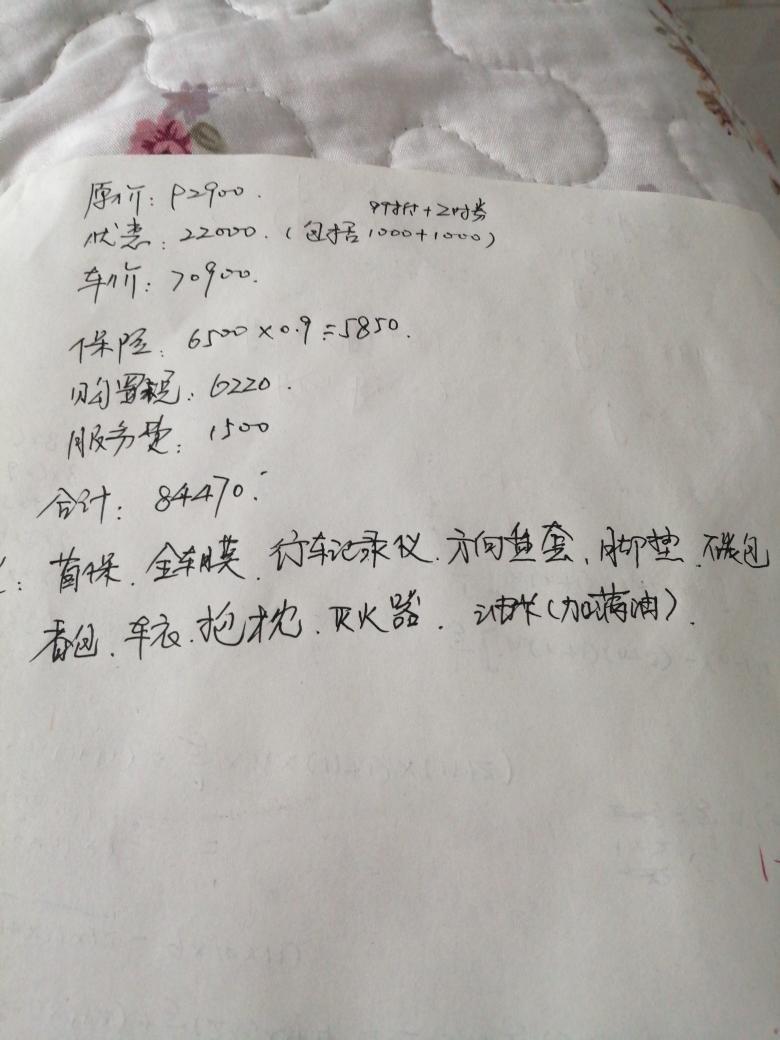 原价: 92900.
9时付+2时券
优惠: 22000.(包括1000+1000)
车价: 70900.
保险: 6500×0.9=5850.
购置税: 6220.
服务费: 1500
合计: 84470.
: 首保.全车膜.行车记录仪.方向盘套、脚垫.碳包
香包.车衣.抱枕.灭火器. 油(加满油).